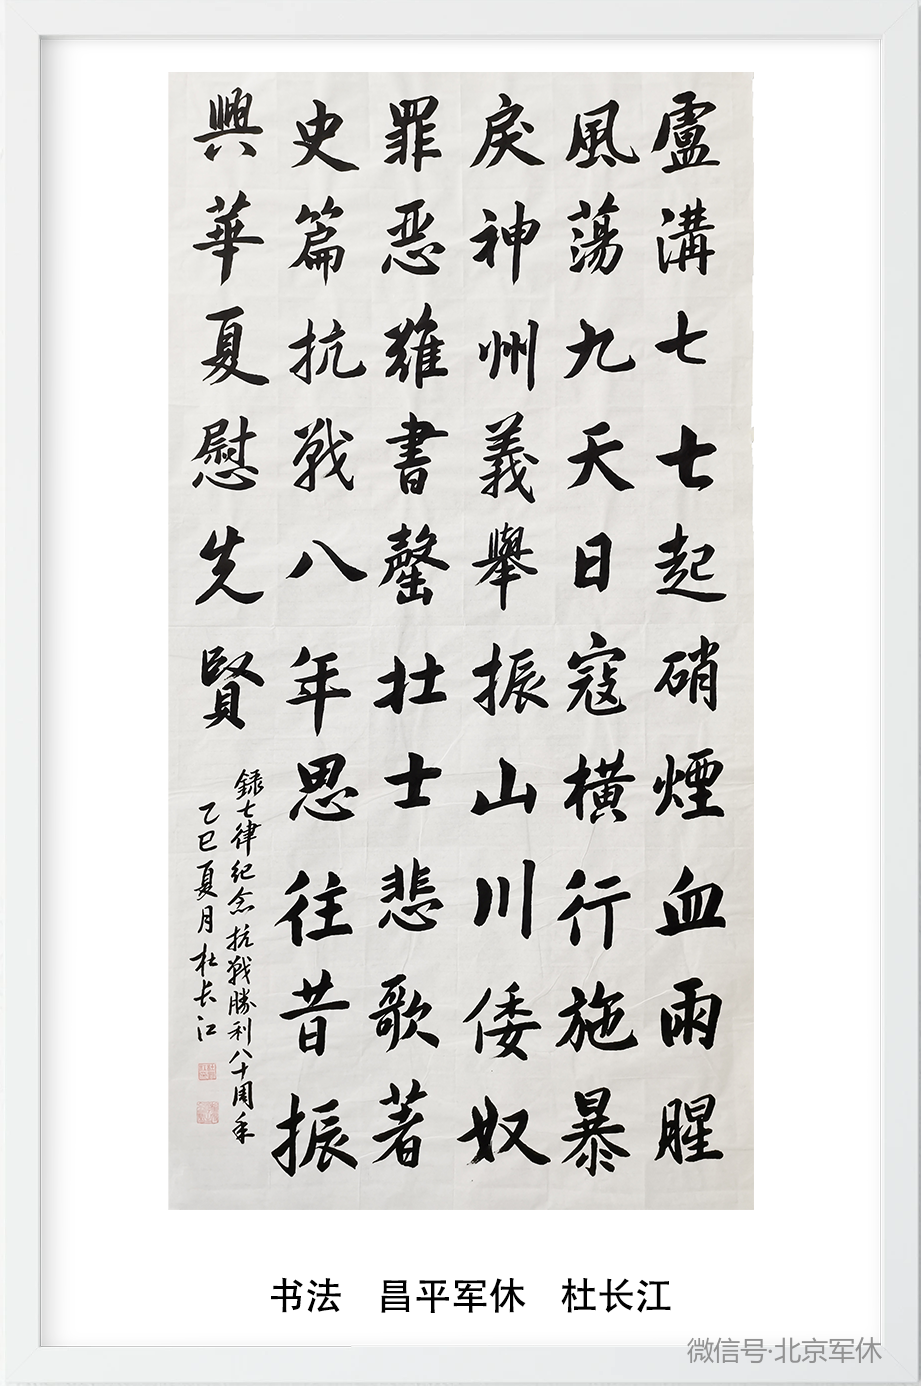 盧溝七七起硝煙血雨腥
風蕩九天日寇橫行施暴
戾神州義舉振山川倭奴
罪恶難書罄壮士悲歌著
史篇抗戰八年思往昔振
興華夏慰先賢
録七律纪念抗戰勝利八十周年
乙巳夏月杜长江
书法 昌平军休 杜长江
微信号·北京军休